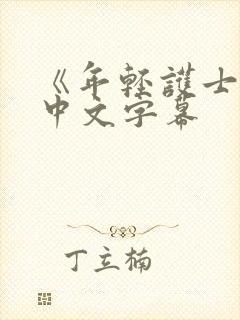 《年轻護士
中文字幕
丁立楠